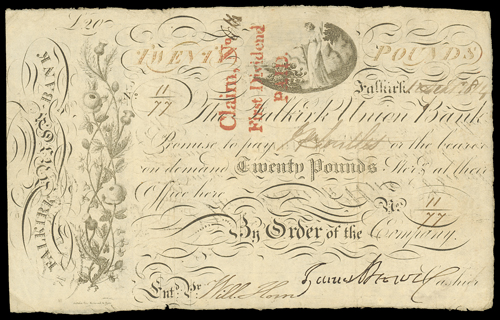 £20
TWENTY POUNDS
Claim, No
First Dividend
paid.
FALKIRK UNION BANK
11/77
Falkirk
The Falkirk Union Bank
Promise to pay J. Smith or the bearer
on demand Twenty Pounds Sterg. at their
Office here
No. 11/77
By Order of the Company.
Entd. Pr. Cashier